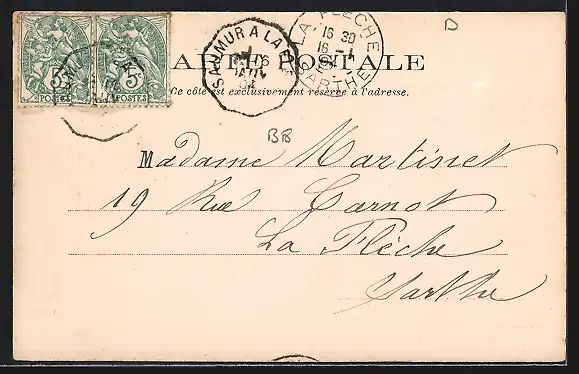 5
POSTES
5
POSTES
SAUMUR A LA FL
16
JANV
04
LA FLECHE
16 30
16 -1
SARTHE
D
CARTE POSTALE
Ce côté est exclusivement réservé à l'adresse.
BB
Madame Martinet
19 Rue Carnot
La Flèche
Sarthe